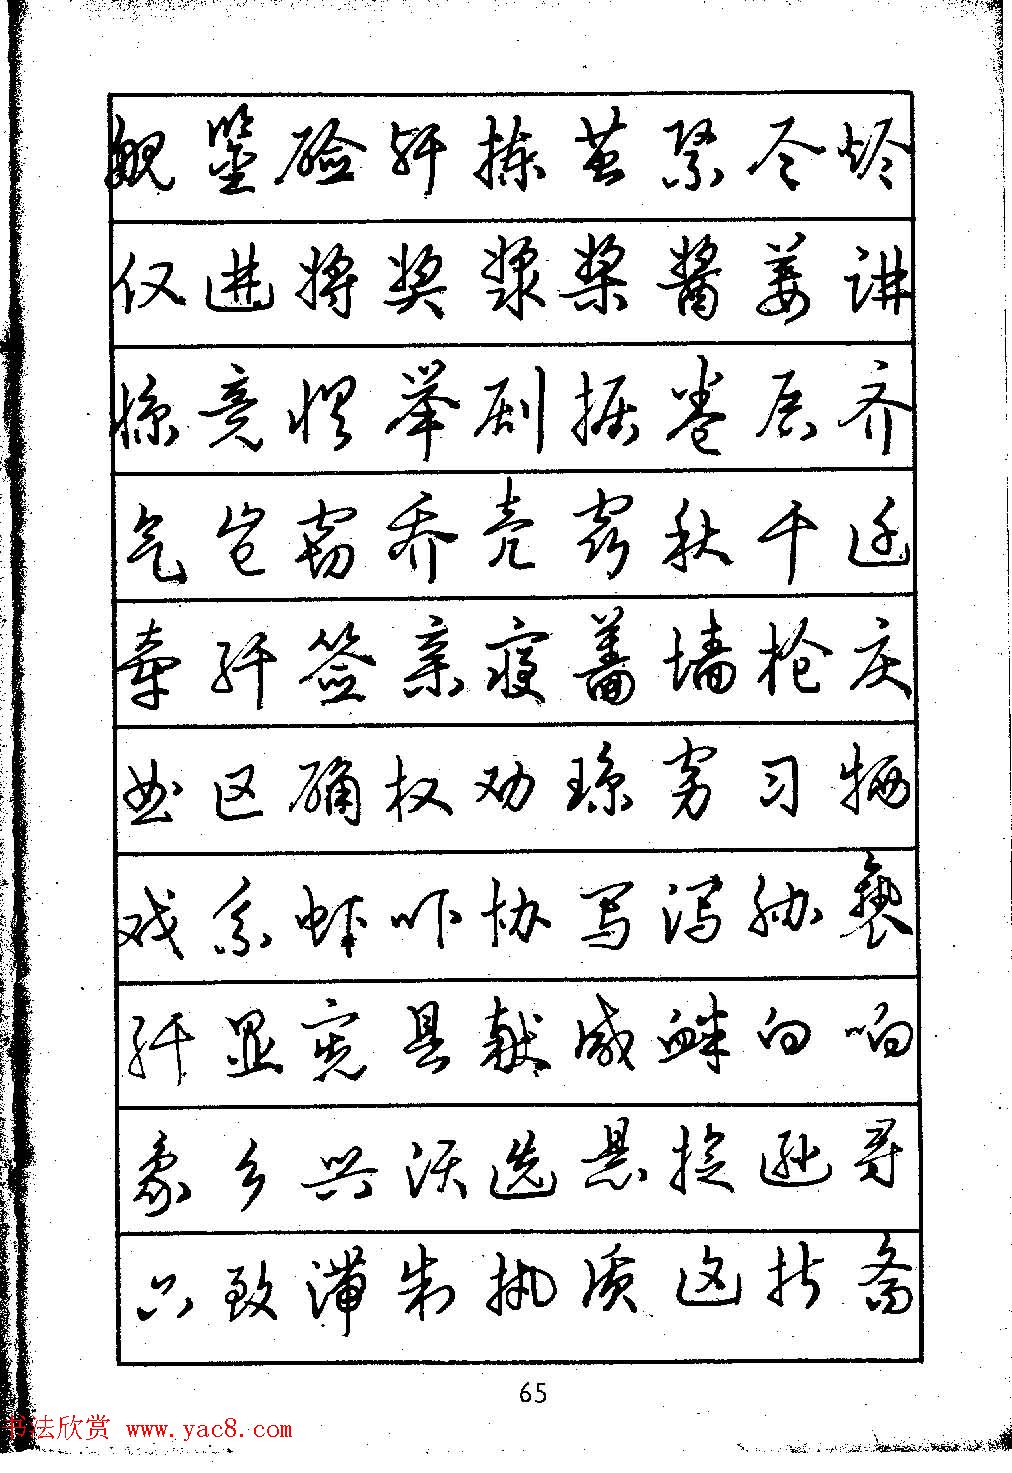 舰鉴硷歼拣茧紧尽烬
仅进将奖浆桨酱姜讲
惊竞惧举剧据卷启齐
气岂窃乔壳窍秋千迁
牵纤签亲寝蔷墙枪庆
曲区确权劝琼穷习牺
戏系虾吓协写泻胁亵
纤显宪县献咸衅向响
象乡兴选悬旋逊寻
只致滞制执质这折斋
65
书法欣赏 www.yac8.com